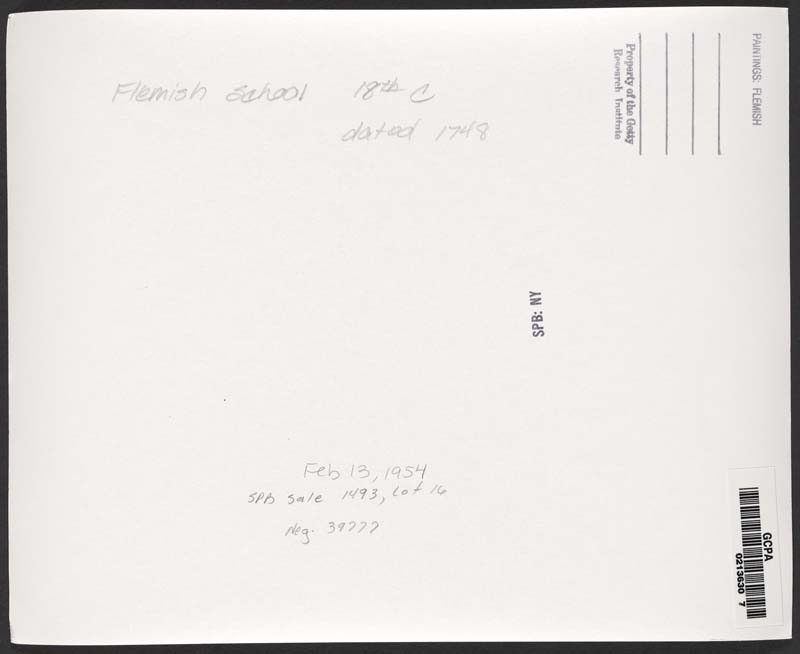 Flemish school 18th C
dated 1748
PAINTINGS: FLEMISH
Property of the Getty
Research Institute
SPB: NY
Feb 13, 1954
SPB sale 1493, Lot 16
Neg. 39777
GCPA
0213630 7